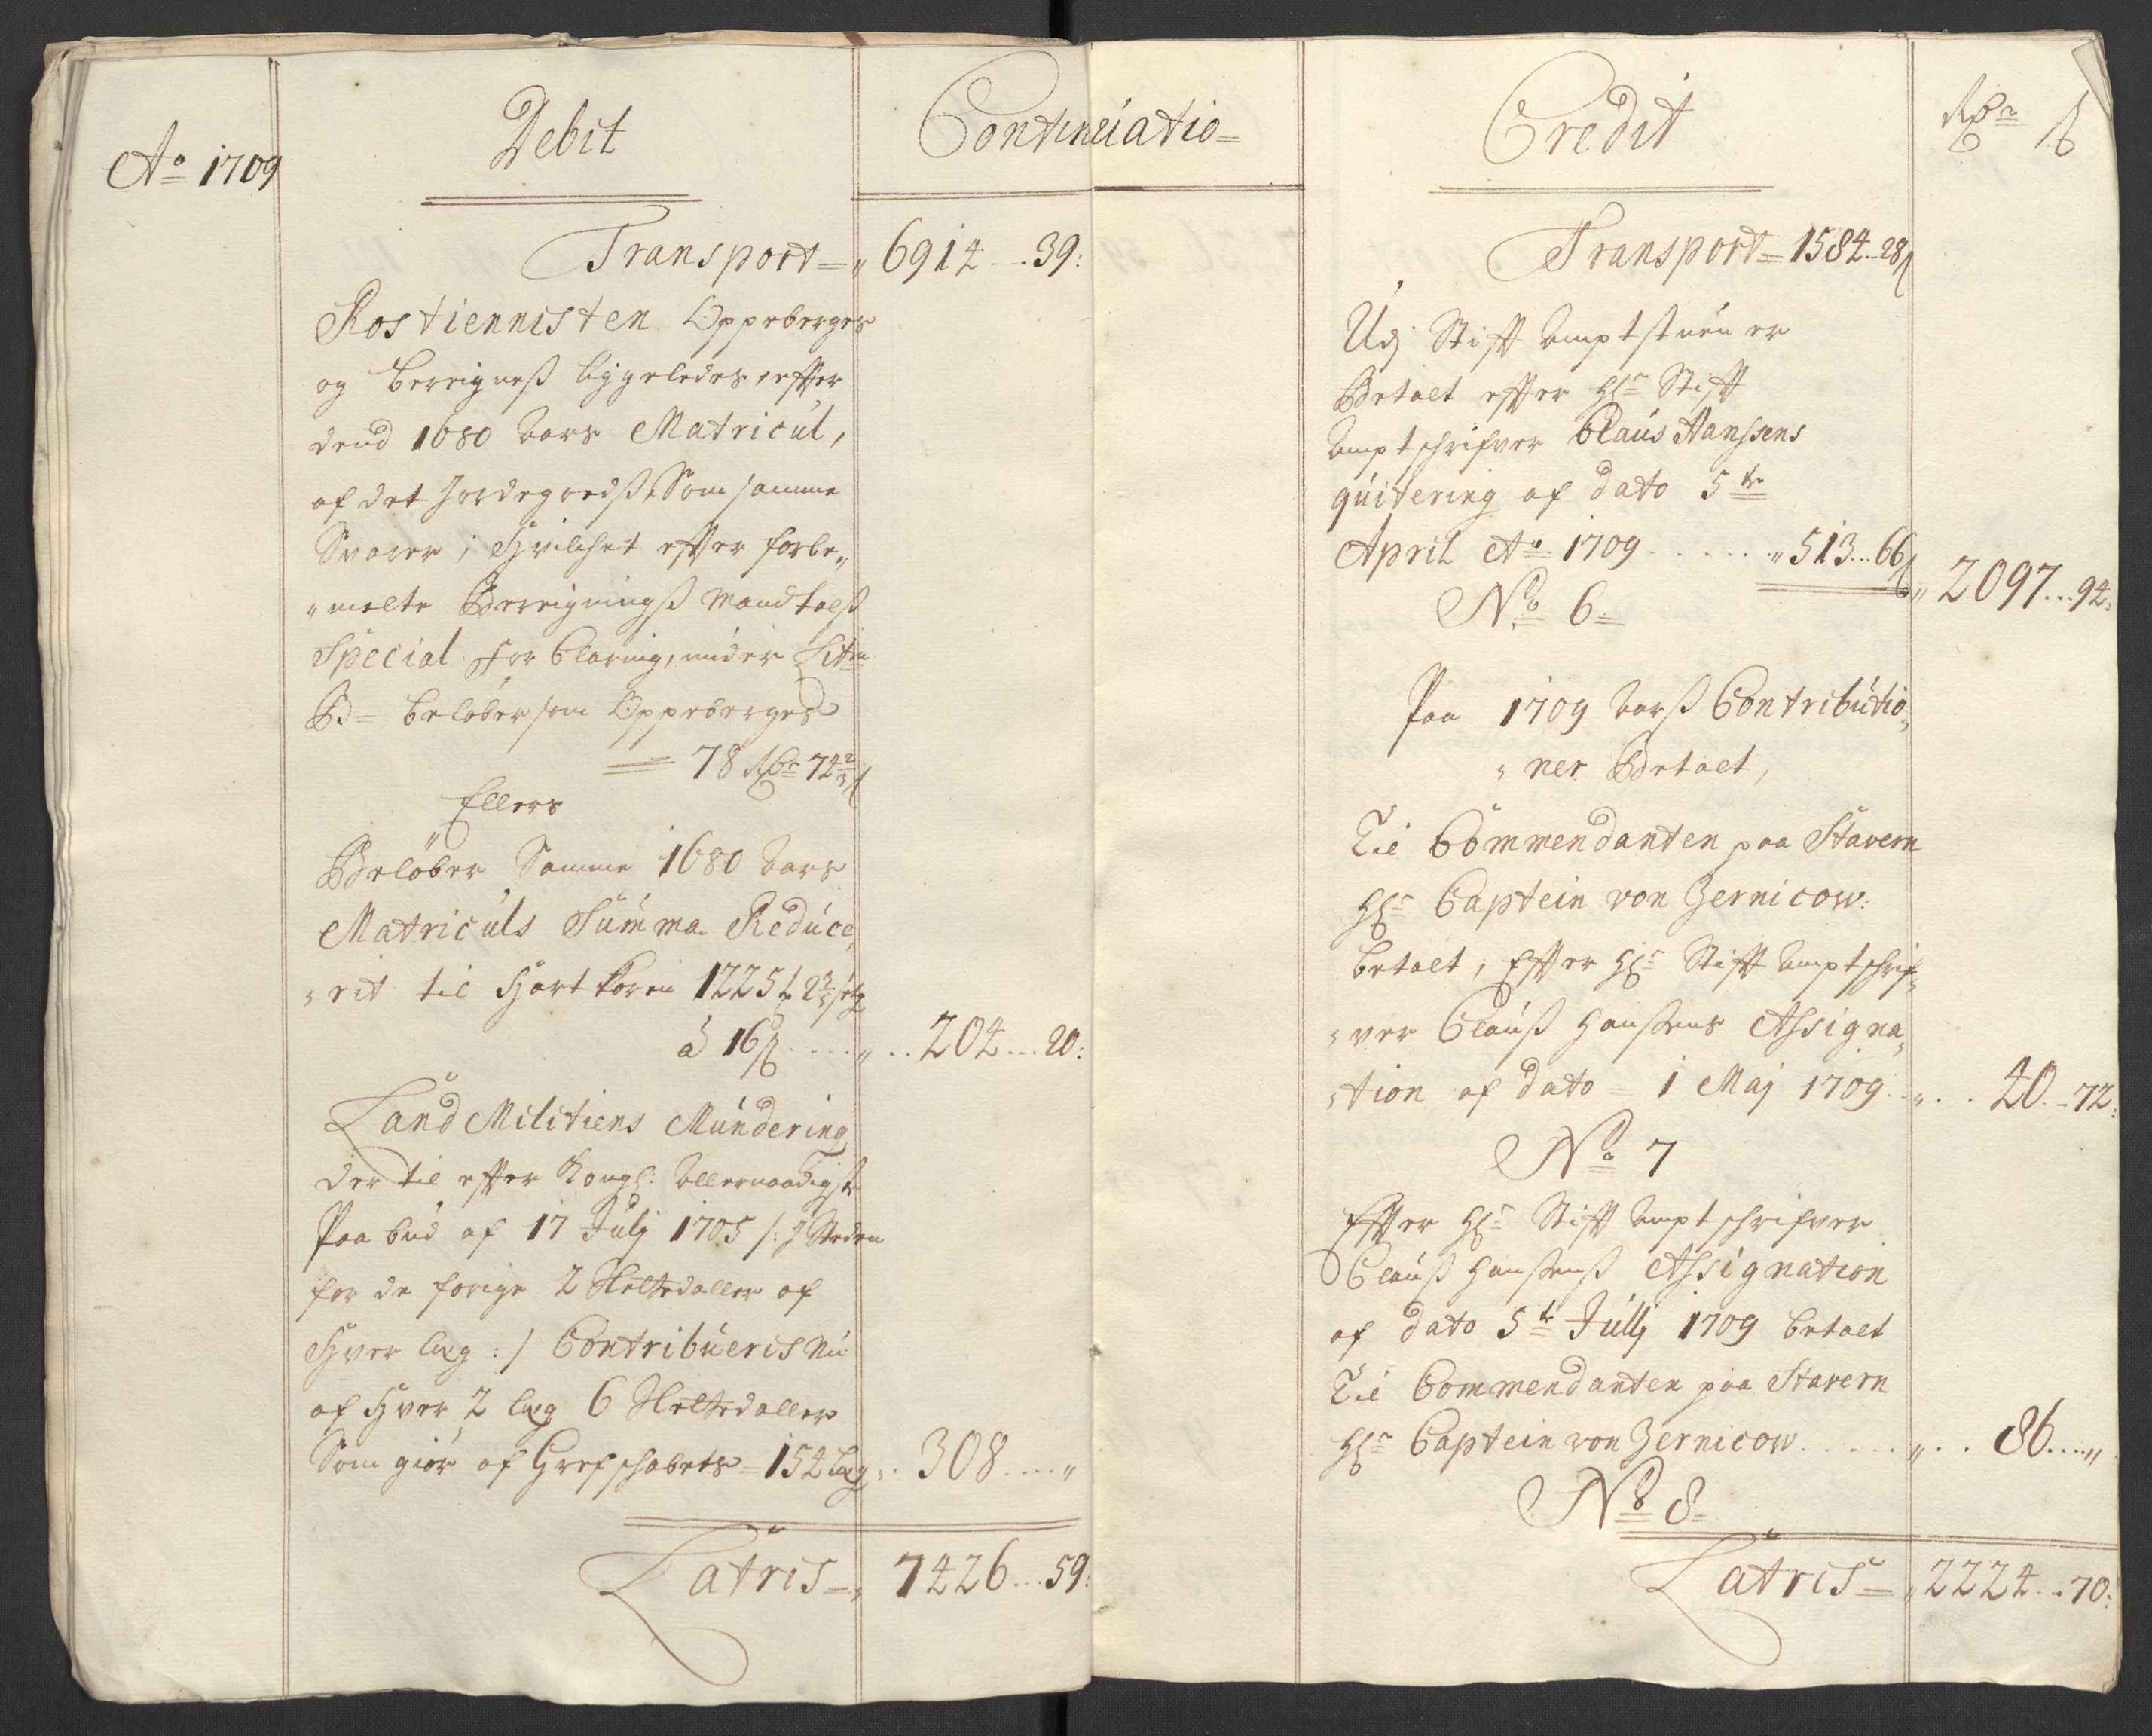 Ao 1709
Debit
Continuatio=
Transport= 6914 .. 39:
Rostiennisten Oppeberges
og bereignes liggeledes, effter
dend 1680 Aars Matricul,
af det Jordegods, Som samme
Svarer, Hvilchet effter forbe„
„melte Bereignings Mandtals
Special for Claring, under Litra
B= beløber som Oppeberges
= 78 Rdr 74 2/3 s
Ellers
Beløber Samme 1680 Aars
Matriculs Summa Reduce„
„rit til Hartkoren 1225 t 2 3/5
à 16 s .... 204 ... 20:
Land Militiens Mundering
der til effter Kongl: Allernaadigste
Paabud af 17 Julj 1705 /: J Steden
for de forige 2 Slettedaller af
Hver læg :/ Contribueris nu
af Hver 2 læg 6 Slettedaller
Som giør af Grefschabets= 154 læg .. 308 .... „
Latris= 7426 ... 59:
Credit
Rdr s
Transport= 1584 .. 28 s
Udj Stifft Amptstuen er
Betalt effter Hr Stifft
Amptschrifver Claus Hanssens
quitering af dato 5te
April Ao 1709 ...... 513 ... 66 s
2097 ... 94:
No 6=
Paa 1709 Aars Contributio„
„ner Betalt,
Til Commendanten paa Stavern
Hr Captein von Zernicow:
betalt, Effter Hr Stifft Amptschrif„
„ver Claus Hanssens Assigna„
„tion af dato= 1 Maj 1709 ... 40 .. 72:
No 7
Effter Hr Stifft Amptschrifver
Claus Hanssens Assignation
af dato 5te Julij 1709 betalt
Til Commendanten paa Stavern
Hr Captein von Zernicow ..... 86 .... „
No 8=
Latris= 2224 .. 70: